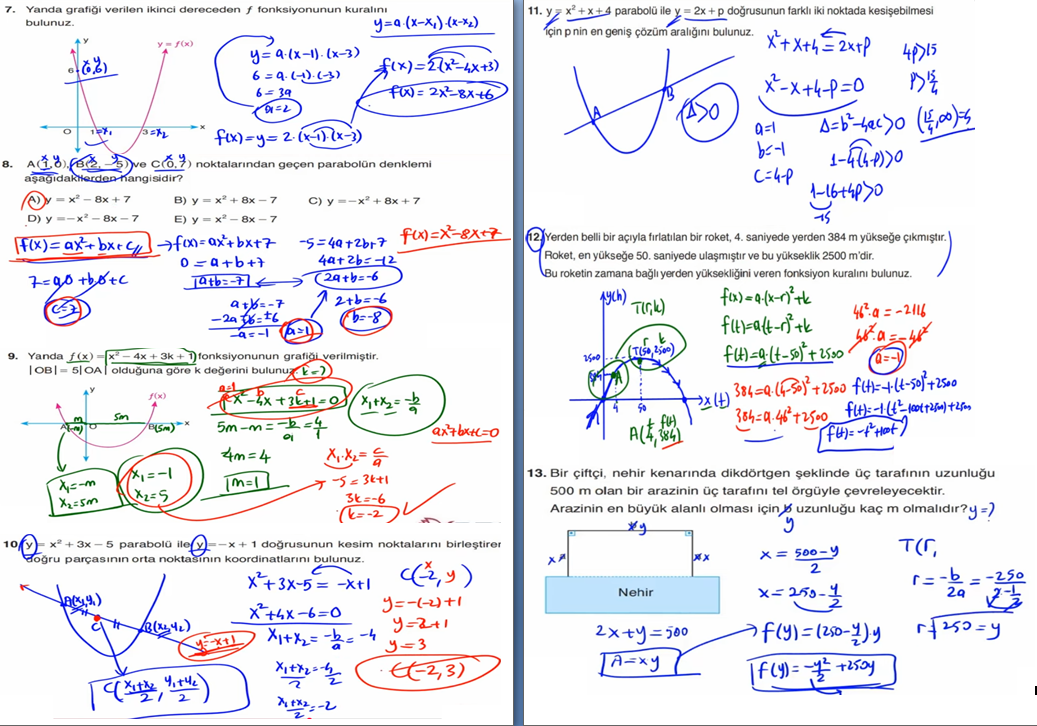 7. Yanda grafiği verilen ikinci dereceden f fonksiyonunun kuralını
bulunuz.
y=a·(x-x₁)·(x-x₂)
y
y = f(x)
6
(0,6)
x y
O
1=x₁
3=x₂
x
y=a·(x-1)·(x-3)
6=a·(-1)·(-3)
6=3a
a=2
f(x)=y=2·(x-1)·(x-3)
f(x)=2(x²-4x+3)
f(x)=2x²-8x+6
8. A(1,0), B(2, -5) ve C(0,7) noktalarından geçen parabolün denklemi
aşağıdakilerden hangisidir?
A) y = x² - 8x + 7
B) y = x² + 8x - 7
C) y = -x² + 8x + 7
D) y = -x² - 8x - 7
E) y = x² - 8x - 7
f(x)=ax²+bx+c
→f(x)=ax²+bx+7
-5=4a+2b+7
f(x)=x²-8x+7
0=a+b+7
4a+2b=-12
7=a.0+b.0+c
a+b=-7
2a+b=-6
c=7
a+b=-7
2+b=-6
-2a+b=±6
b=-8
-a=-1
a=1
9. Yanda f(x) = x² - 4x + 3k + 1 fonksiyonunun grafiği verilmiştir.
|OB| = 5|OA| olduğuna göre k değerini bulunuz. k=?
y
f(x)
m
5m
A(-m)
O
B(5m)
x
a=1
b
c
x²-4x+3k+1=0
x₁+x₂=-b/a
5m-m=-b/a=4/1
ax²+bx+c=0
x₁=-m
x₂=5m
x₁=-1
x₂=5
4m=4
m=1
x₁·x₂=c/a
-5=3k+1
3k=-6
k=-2
10. y = x² + 3x - 5 parabolü ile y = -x + 1 doğrusunun kesim noktalarını birleştiren
doğru parçasının orta noktasının koordinatlarını bulunuz.
A(x₁,y₁)
C
B(x₂,y₂)
y=-x+1
C(x₁+x₂/2, y₁+y₂/2)
x²+3x-5=-x+1
x²+4x-6=0
x₁+x₂=-b/a=-4
x₁+x₂/2=-4/2
x₁+x₂/2=-2
C(-2, y)
x
y=-(-2)+1
y=2+1
y=3
C(-2,3)
11. y = x² + x + 4 parabolü ile y = 2x + p doğrusunun farklı iki noktada kesişebilmesi
için p nin en geniş çözüm aralığını bulunuz.
x²+x+4=2x+p
x²-x+4-p=0
A
B
Δ>0
a=1
b=-1
c=4-p
Δ=b²-4ac>0
1-4(4-p)>0
1-16+4p>0
-15
4p>15
p>15/4
(15/4,∞)=Ç
12. Yerden belli bir açıyla fırlatılan bir roket, 4. saniyede yerden 384 m yükseğe çıkmıştır.
Roket, en yükseğe 50. saniyede ulaşmıştır ve bu yükseklik 2500 m'dir.
Bu roketin zamana bağlı yerden yüksekliğini veren fonksiyon kuralını bulunuz.
y(h)
T(r,k)
r k
T(50,2500)
2500
384
A
4
50
x(t)
t f(t)
A(4,384)
f(x)=a·(x-r)²+k
f(t)=a(t-r)²+k
f(t)=a·(t-50)²+2500
384=a.(4-50)²+2500
384=a.46²+2500
46².a=-2116
46².a=-46²
a=-1
f(t)=-1·(t-50)²+2500
f(t)=-1(t²-100t+2500)+2500
f(t)=-t²+100t
13. Bir çiftçi, nehir kenarında dikdörtgen şeklinde üç tarafının uzunluğu
500 m olan bir arazinin üç tarafını tel örgüyle çevreleyecektir.
Arazinin en büyük alanlı olması için y uzunluğu kaç m olmalıdır? y=?
y
x
x
Nehir
2x+y=500
A=xy
x=500-y/2
x=250-y/2
f(y)=(250-y/2).y
f(y)=-y²/2+250y
T(r,
r=-b/2a=-250/2·-1/2
r=250=y